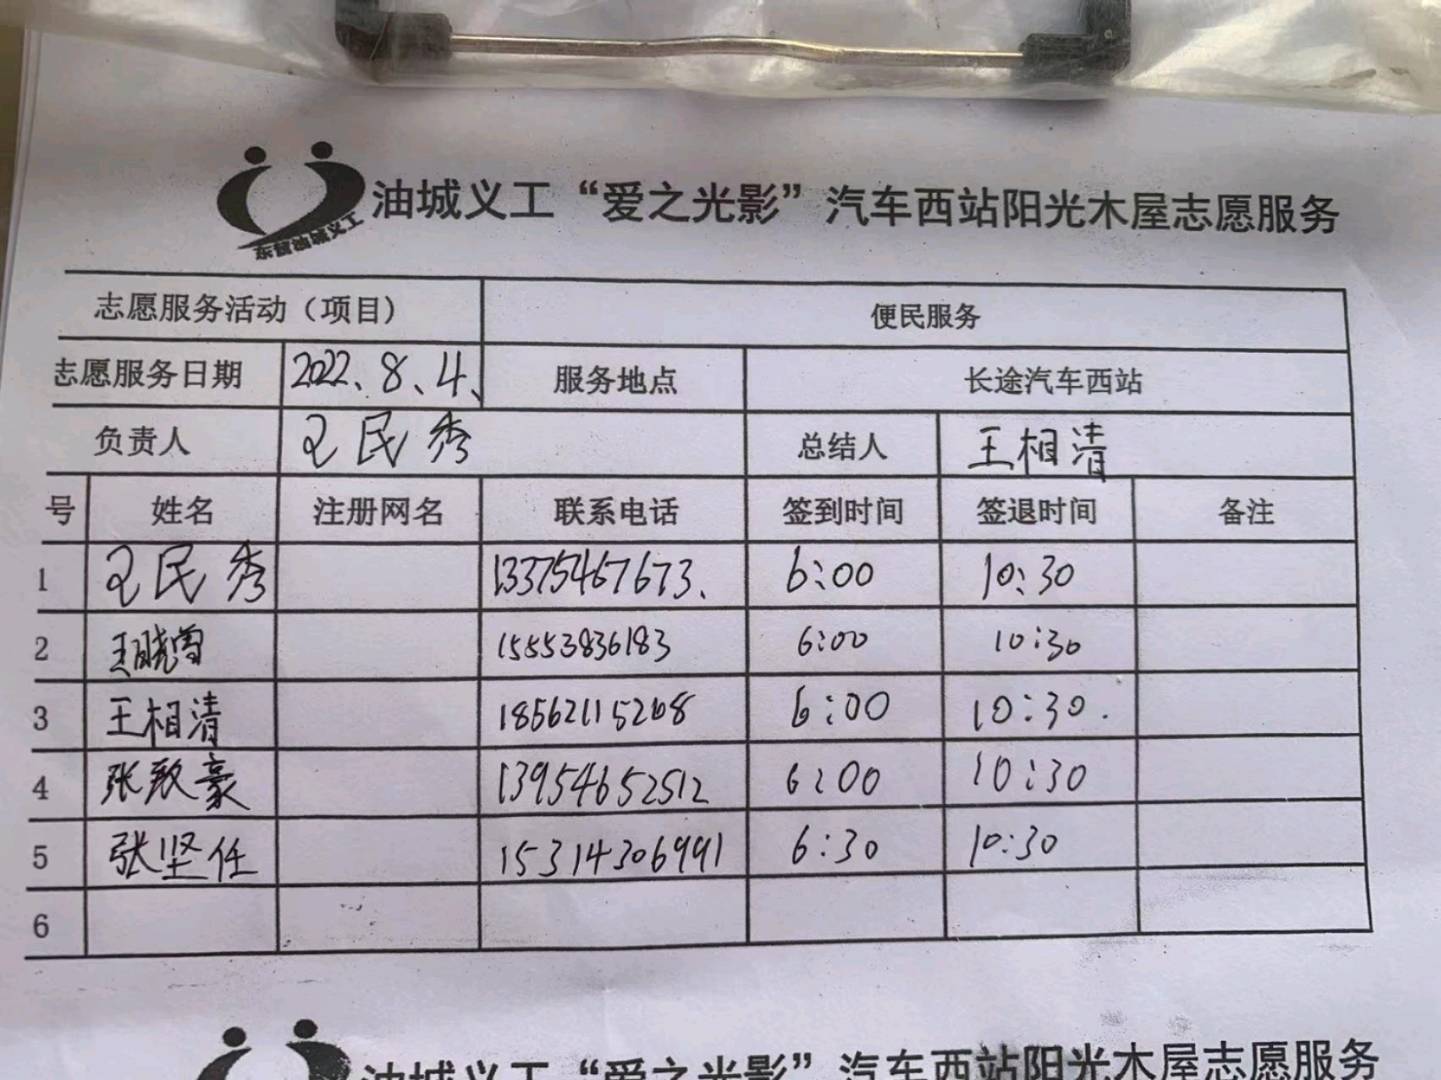 油城义工“爱之光影”汽车西站阳光木屋志愿服务
东营油城义工
志愿服务活动（项目） 便民服务
志愿服务日期 2022、8、4、 服务地点 长途汽车西站
负责人 王民秀 总结人 王相清
号 姓名 注册网名 联系电话 签到时间 签退时间 备注
1 王民秀 13375467673、 6:00 10:30
2 15553836183 6:00 10:30
3 王相清 18562115268 6:00 10:30.
4 张致豪 13954652512 6:00 10:30
5 张坚任 15314306991 6:30 10:30
6
油城义工“爱之光影”汽车西站阳光木屋志愿服务